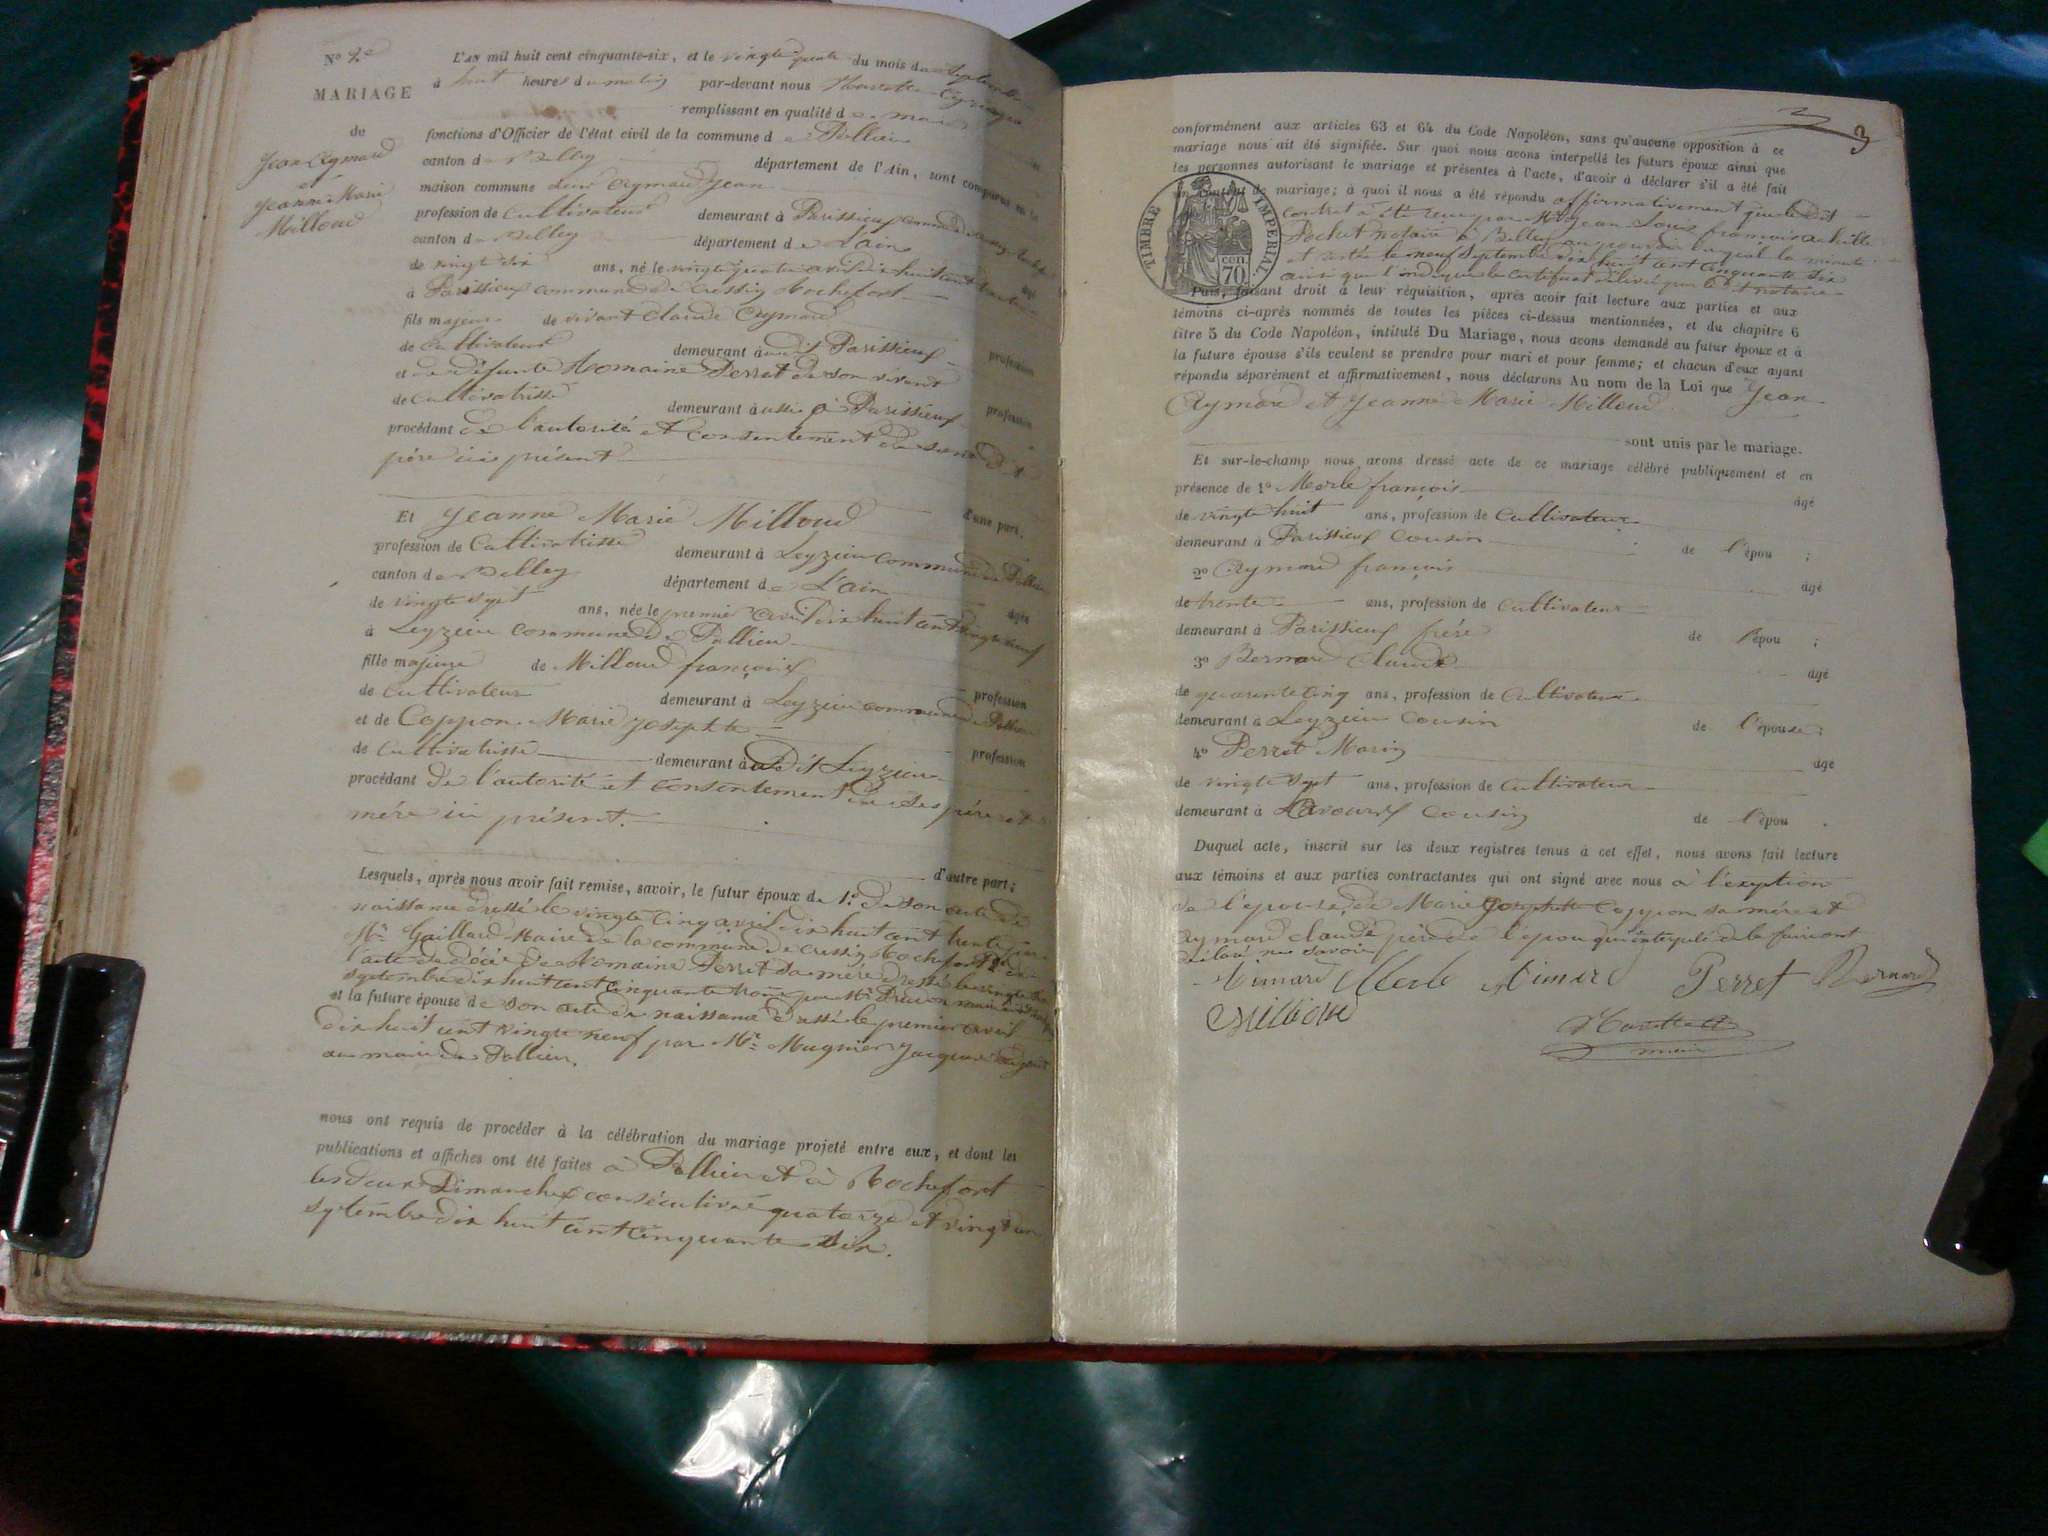 N° 2e
MARIAGE
de
Jean Aymard
et
Jeanne Marie
Milloud
L'AN mil huit cent cinquante-six, et le vingt quatre du mois de septembre
à huit heures du matin par-devant nous
remplissant en qualité de maire
fonctions d'Officier de l'état civil de la commune de Pollieu
canton de Belley département de l'Ain, sont comparus en la
maison commune Aymard Jean
profession de Cultivateur demeurant à Parissieux commune de
canton de Belley département de L'ain
de vingt six ans, né le vingt quatre avril dix huit cent trente âgé
à Parissieux commune de Cressin Rochefort
fils majeur de vivant Claude Aymard
de Cultivateur demeurant à Parissieux profession
et de défunte Romaine Perret de son vivant
de Cultivatrisse demeurant à aussi à Parissieux profession
procédant de l'autorité et consentement de son dit
père ici présent
d'une part.
Et Jeanne Marie Milloud
profession de Cultivatrisse demeurant à Leyzieu commune de Pollieu
canton de Belley département de L'ain
de vingt sept ans, née le premier avril dix huit cent vingt neuf âgée
à Leyzieu commune de Pollieu
fille majeure de Milloud françois
de Cultivateur demeurant à Leyzieu commune de Pollieu profession
et de Coppon Marie Josephte
de Cultivatrisse demeurant à dit Leyzieu profession
procédant de l'autorité et consentement de ses père et
mère ici présent.
d'autre part;
Lesquels, après nous avoir fait remise, savoir, le futur époux de 1° de son acte de
naissance dressé le vingt cinq avril dix huit cent trente par
Mr Gaillard Maire de la commune de Cressin Rochefort 2° de
l'acte de décès de Romaine Perret sa mère dressé le vingt
septembre dix huit cent cinquante par Mr maire
et la future épouse de son acte de naissance dressé le premier avril
dix huit cent vingt neuf par Mr Mugnier Jacques adjoint
au maire de Pollieu.
nous ont requis de procéder à la célébration du mariage projeté entre eux, et dont les
publications et affiches ont été faites à Pollieu et à Rochefort
les deux Dimanches consécutives quatorze et vingt un
septembre dix huit cent cinquante six.
3
conformément aux articles 63 et 64 du Code Napoléon, sans qu'aucune opposition à ce
mariage nous ait été signifiée. Sur quoi nous avons interpellé les futurs époux ainsi que
les personnes autorisant le mariage et présentes à l'acte, d'avoir à déclarer s'il a été fait
un contrat de mariage; à quoi il nous a été répondu affirmativement que le dit
contrat a été reçu par Me Jean Louis françois achille
Pochet notaire à Belley au pouvoir duquel la minute
et restée le neuf septembre dix huit cent cinquante six
ainsi que l'indique le certificat délivré par le notaire
TIMBRE IMPÉRIAL
70 cen.
Puis, faisant droit à leur réquisition, après avoir fait lecture aux parties et aux
témoins ci-après nommés de toutes les pièces ci-dessus mentionnées, et du chapitre 6
titre 5 du Code Napoléon, intitulé Du Mariage, nous avons demandé au futur époux et à
la future épouse s'ils veulent se prendre pour mari et pour femme; et chacun d'eux ayant
répondu séparément et affirmativement, nous déclarons Au nom de la Loi que Jean
Aymard et Jeanne Marie Milloud
sont unis par le mariage.
Et sur-le-champ nous avons dressé acte de ce mariage célébré publiquement et en
présence de 1° Merle françois âgé
de vingt huit ans, profession de Cultivateur
demeurant à Parissieux cousin de l'épou ;
2° Aymard françois âgé
de trente ans, profession de Cultivateur
demeurant à Parissieux frére de l'épou ;
3° Bernard Claude âgé
de quarante cinq ans, profession de Cultivateur
demeurant à Leyzieu cousin de l'épouse;
4° Perret Marin âgé
de vingt sept ans, profession de Cultivateur
demeurant à Lavours cousin de l'épou .
Duquel acte, inscrit sur les deux registres tenus à cet effet, nous avons fait lecture
aux témoins et aux parties contractantes qui ont signé avec nous à l'exeption
de l'epouse, de Marie Josephte Coppon sa mére et
Aymard claude père de l'epou qui interpelé de le faire ont
déclaré ne savoir
Aimard Merle Aimard Perret Bernard
Milloud
maire